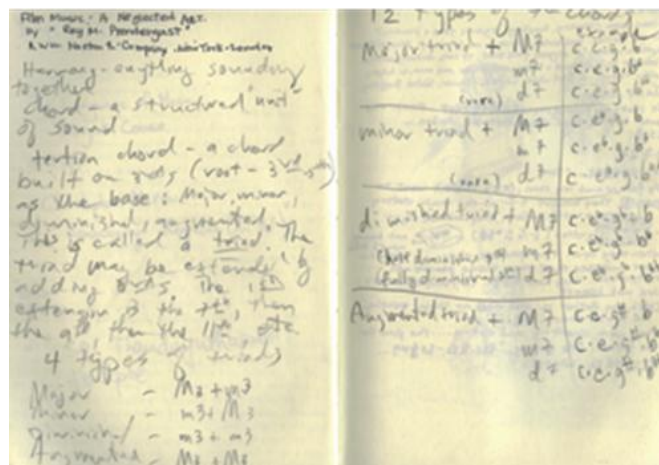 Film Music - A Neglected Art.
by "Roy M. Prendergast"
Norton & Company, New York - London
Harmony - anything sounding
together
chord - a structured "unit"
of sound
tertian chord - a chord
built on 3rds (root - 3rd - 5th)
as the base: Major, minor,
diminished, augmented.
This is called a triad. The
triad may be extended by
adding 3rds. The 1st
extension is the 7th, then
the 9th, then the 11th, etc
4 types of triads
Major - M3 + m3
minor - m3 + M3
Diminished - m3 + m3
Augmented - M3 + M3
12 types of chords
example
Major triad + M7 c·e·g·b
m7 c·e·g·b♭
(rare) d7 c·e·g·
minor triad + M7 c·e♭·g·b
m7 c·e♭·g·b♭
(rare) d7 c·e♭·g·
diminished triad + M7 c·e♭·g♭·b
(half diminished 7th) m7 c·e♭·g♭·b♭
(fully diminished 7th) d7 c·e♭·g♭·
Augmented triad + M7 c·e·g#·b
m7 c·e·g#·b♭
d7 c·e·g#·